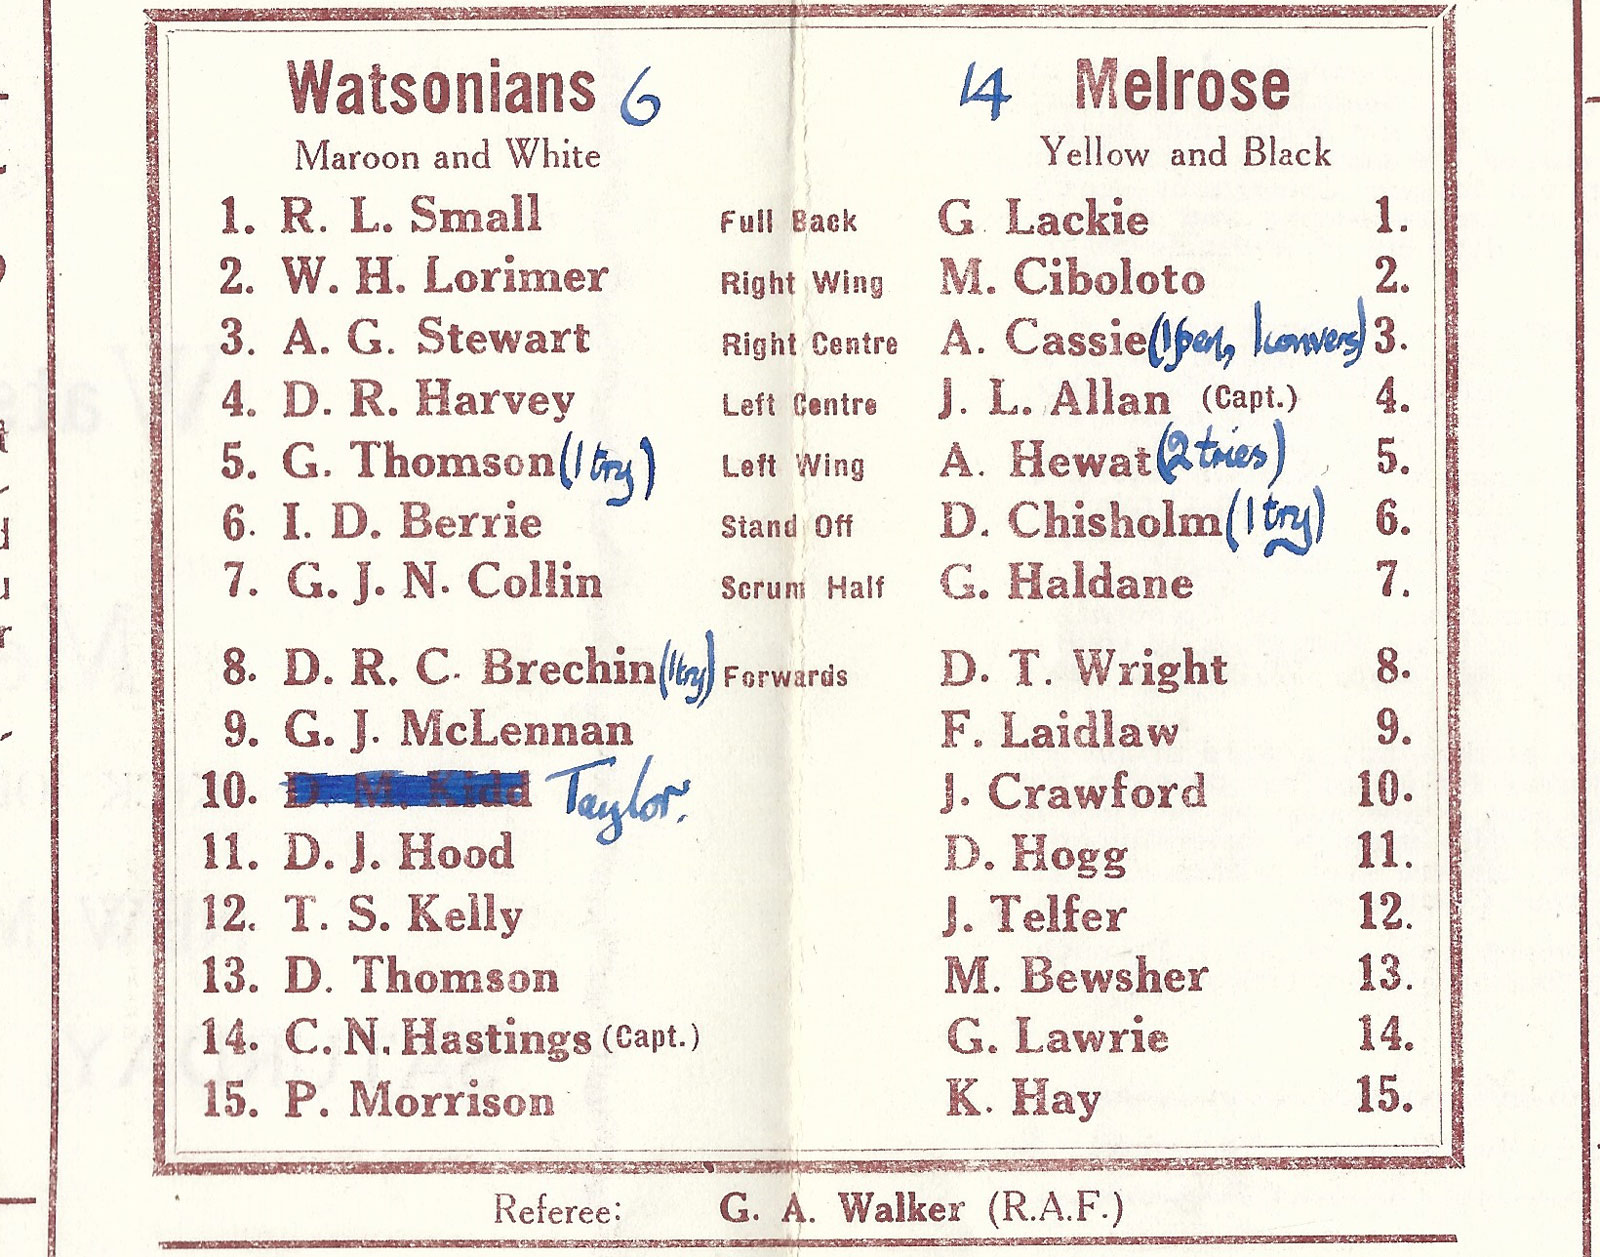 Watsonians 6 14 Melrose
Maroon and White Yellow and Black
1. R. L. Small Full Back G. Lackie 1.
2. W. H. Lorimer Right Wing M. Ciboloto 2.
3. A. G. Stewart Right Centre A. Cassie (1 pen, 1 convers) 3.
4. D. R. Harvey Left Centre J. L. Allan (Capt.) 4.
5. G. Thomson (1 try) Left Wing A. Hewat (2 tries) 5.
6. I. D. Berrie Stand Off D. Chisholm (1 try) 6.
7. G. J. N. Collin Scrum Half G. Haldane 7.
8. D. R. C. Brechin (1 try) Forwards D. T. Wright 8.
9. G. J. McLennan F. Laidlaw 9.
10. D. M. Kidd Taylor. J. Crawford 10.
11. D. J. Hood D. Hogg 11.
12. T. S. Kelly J. Telfer 12.
13. D. Thomson M. Bewsher 13.
14. C. N. Hastings (Capt.) G. Lawrie 14.
15. P. Morrison K. Hay 15.
Referee: G. A. Walker (R.A.F.)